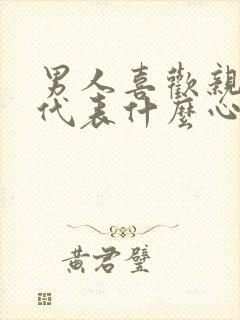 男人喜歡親
代表什麼心
黃君璧